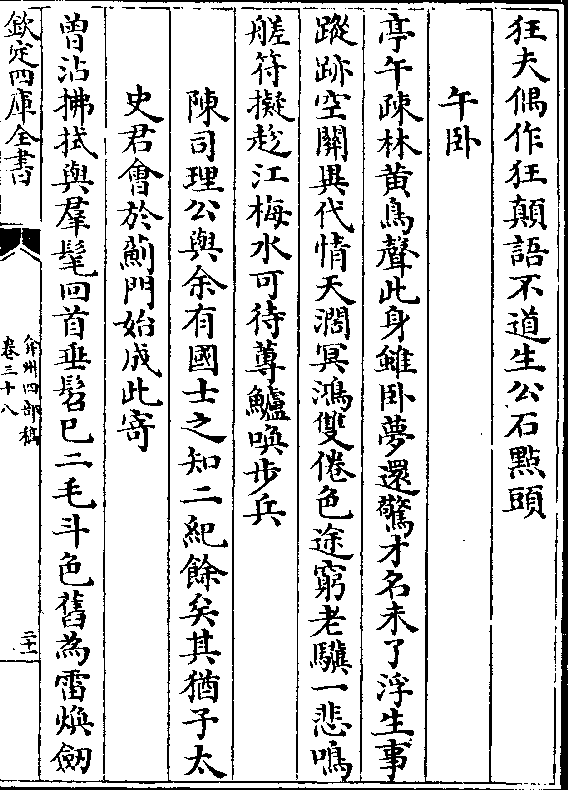 狂夫偶作狂顛語不道生公石點頭
午卧
亭午疎林黄鳥聲此身雖卧夢還驚才名未了浮生事
蹤跡空關異代情天濶冥鴻雙倦色途窮老驥一悲鳴
艖符擬趁江梅水可待蓴鱸喚步兵
陳司理公與余有國士之知二紀餘矣其猶子太
史君會於薊門始成此寄
曽沾拂拭與羣髦回首垂髫已二毛斗色舊為雷煥劒
欽定四庫全書
弇州四部稿
卷三十八
二十一